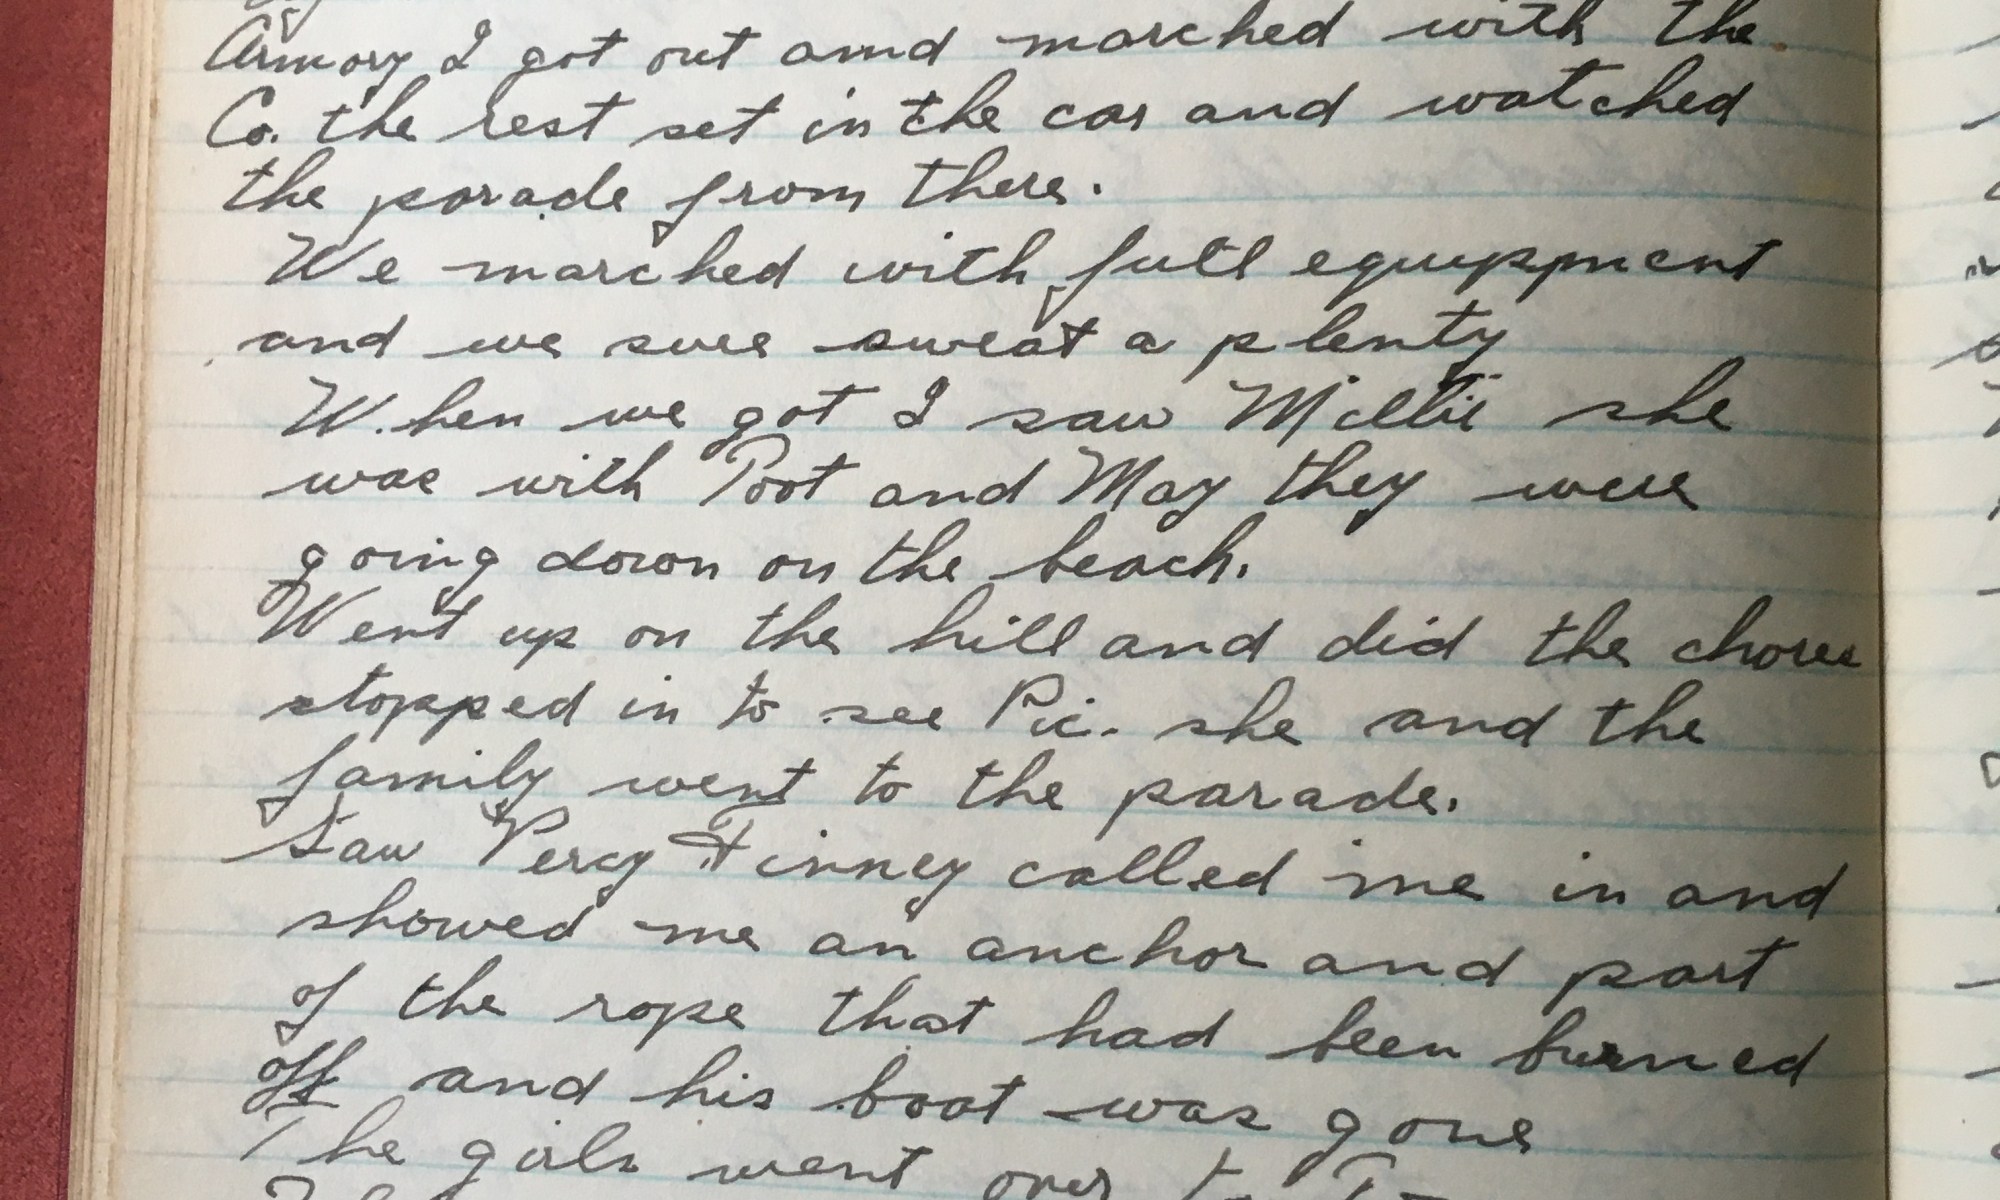 Armory I got out amd marched with the
Co. the rest set in the car and watched
the parade from there.
We marched with full equippment
and we sure sweat a plenty
When we got I saw Millie she
was with Poot and May they were
going down on the beach.
Went up on the hill and did the chores
stopped in to see Pic. she and the
family went to the parade.
Saw Percy Finney called me in and
showed me an anchor and part
of the rope that had been burned
off and his boat was gone
The girls went over to